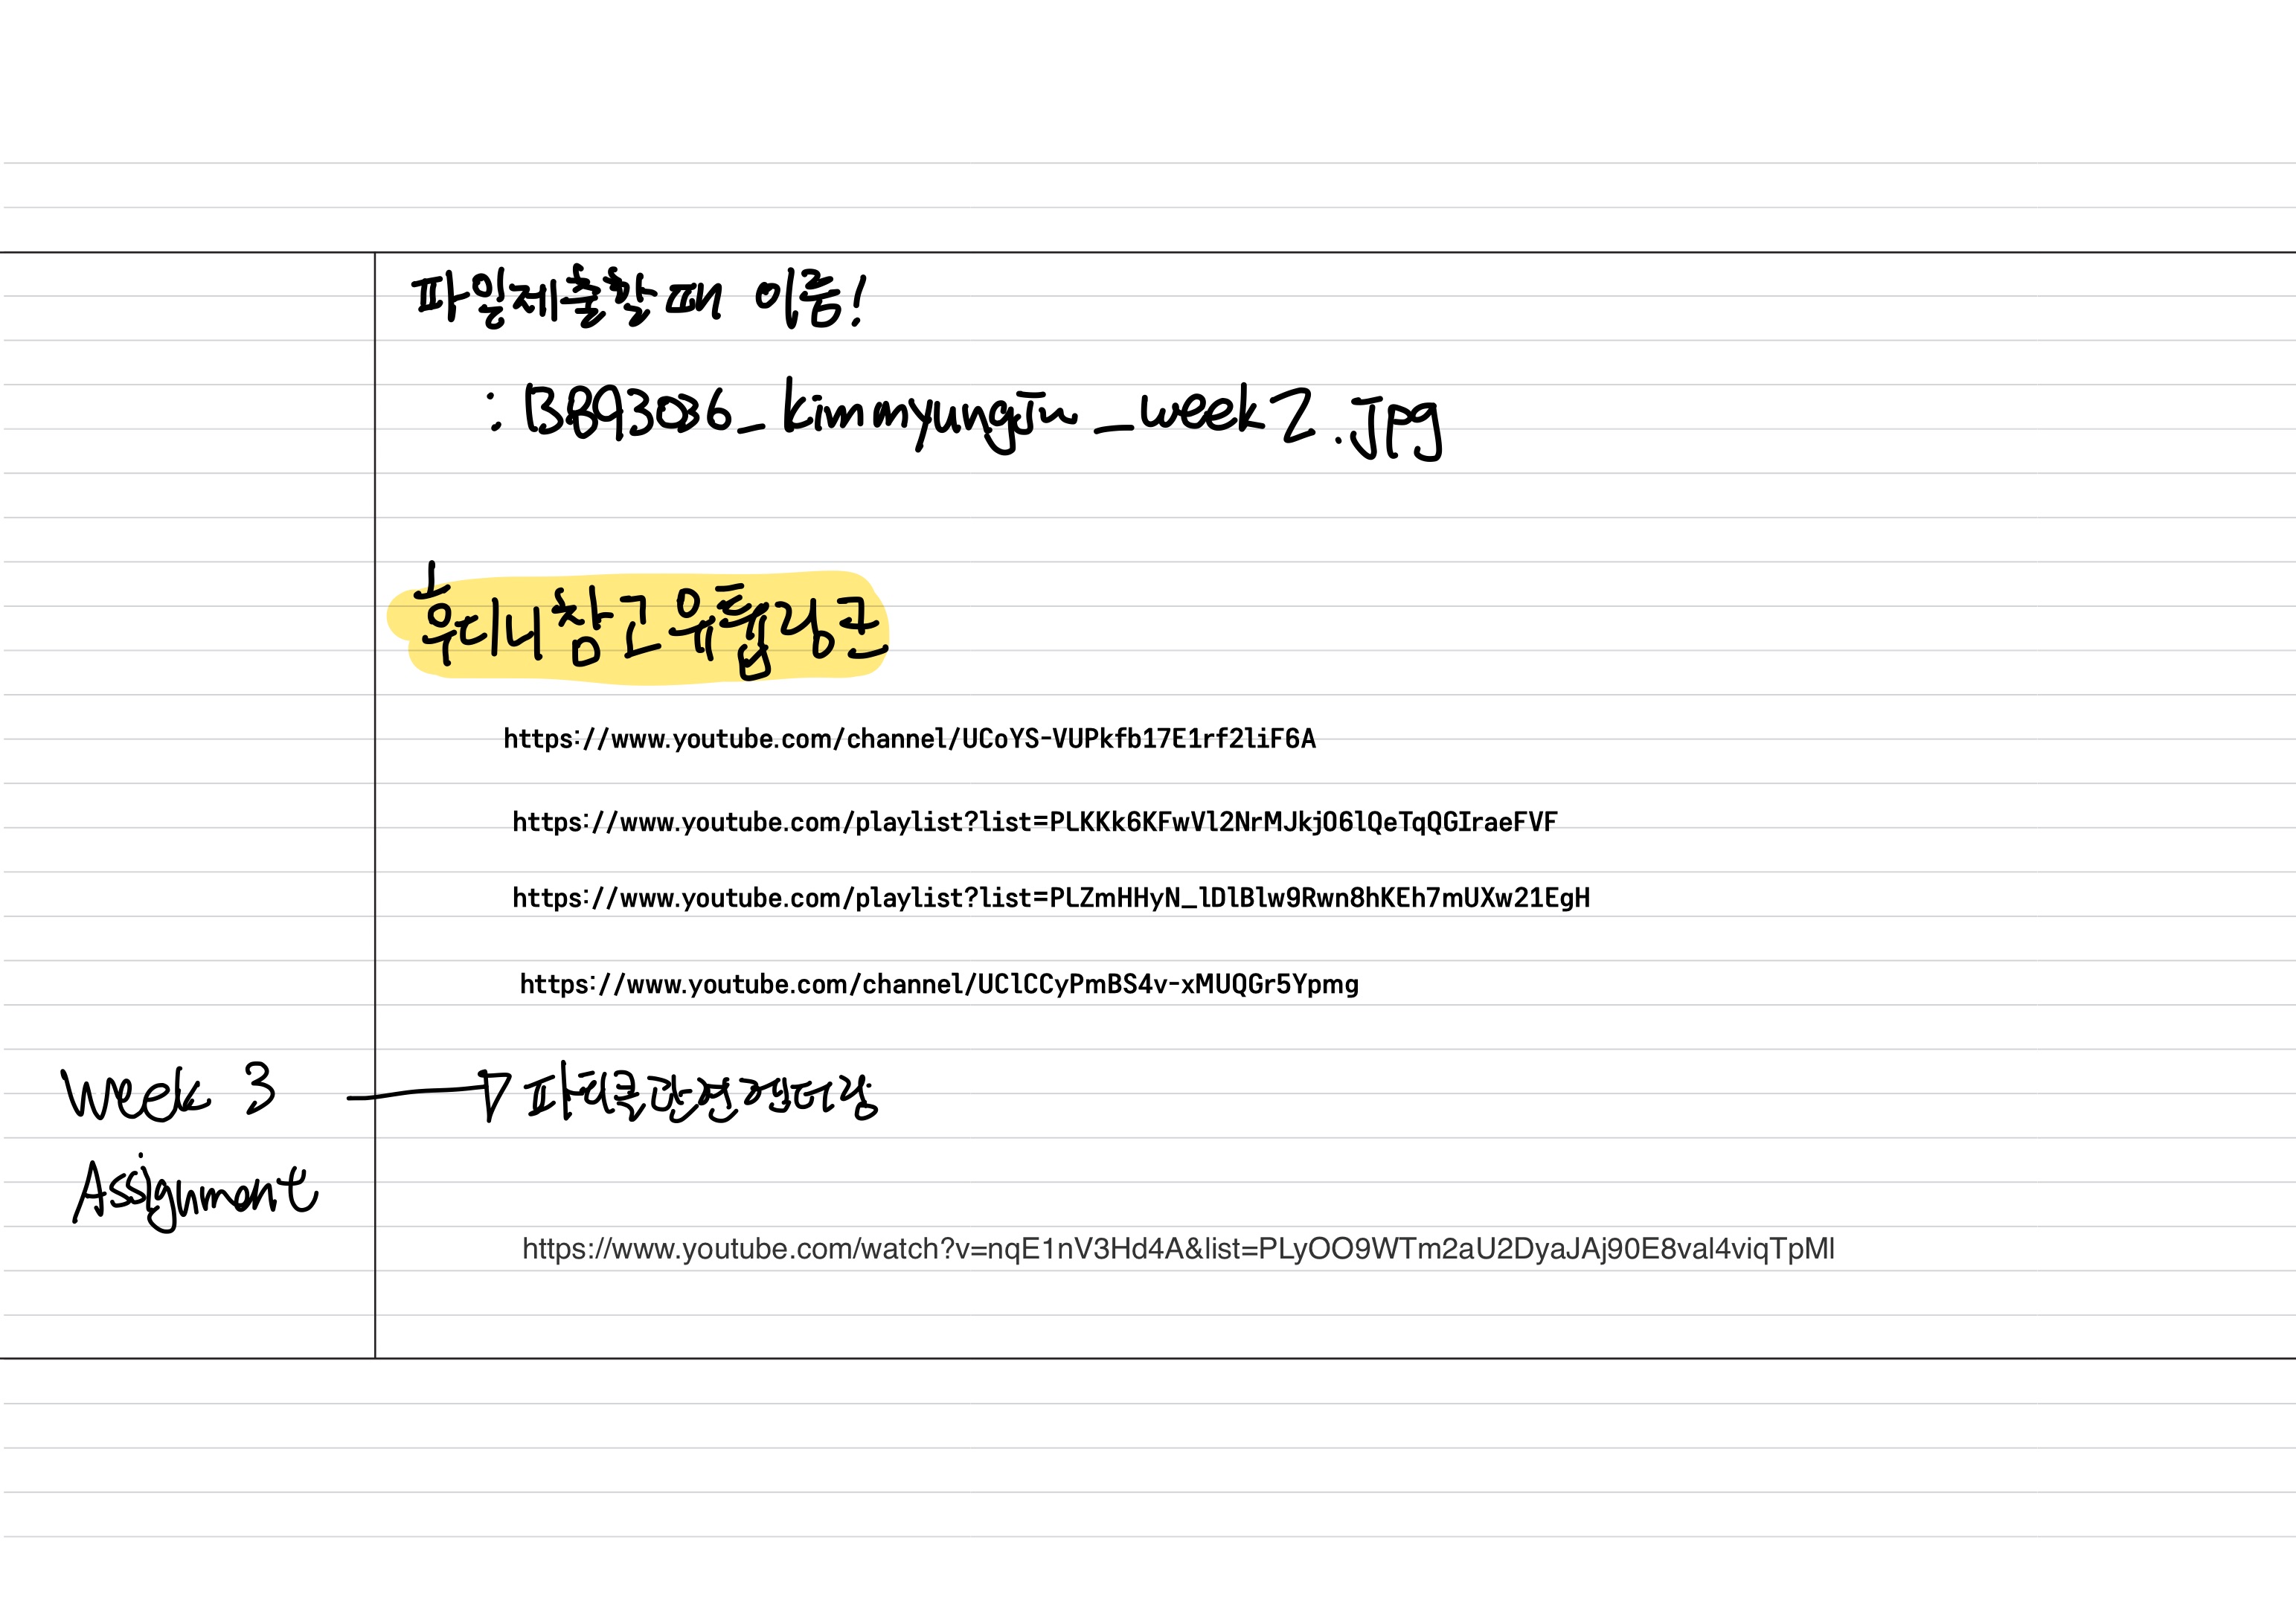 파일제출할때 이름!
: B893036_kimmyungjin_week2.jpg
후디니참고유튭링크
https://www.youtube.com/channel/UCoYS-VUPkfb17E1rf2liF6A
https://www.youtube.com/playlist?list=PLKKk6KFwVl2NrMJkjO6lQeTqQGIraeFVF
https://www.youtube.com/playlist?list=PLZmHHyN_lDlBlw9Rwn8hKEh7mUXw21EgH
https://www.youtube.com/channel/UClCCyPmBS4v-xMUQGr5Ypmg
Week 3
Assignment
파티클관련렌더링
https://www.youtube.com/watch?v=nqE1nV3Hd4A&list=PLyOO9WTm2aU2DyaJAj90E8val4viqTpMl